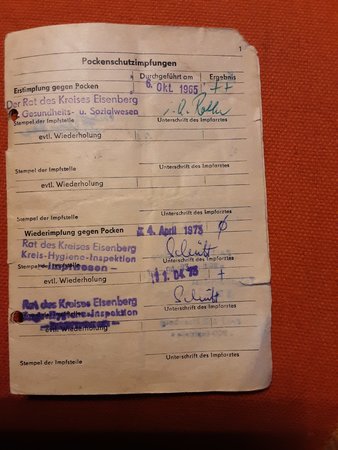 1
Pockenschutzimpfungen
Durchgeführt am Ergebnis
Erstimpfung gegen Pocken 6. Okt. 1965 ++
Der Rat des Kreises Eisenberg
Gesundheits- u. Sozialwesen
Stempel der Impfstelle Unterschrift des Impfarztes
evtl. Wiederholung
Stempel der Impfstelle Unterschrift des Impfarztes
evtl. Wiederholung
Stempel der Impfstelle Unterschrift des Impfarztes
Wiederimpfung gegen Pocken 4. April 1973 Ø
Rat des Kreises Eisenberg
Kreis-Hygiene-Inspektion
Stempel der Impfstelle Unterschrift des Impfarztes
- Impfwesen -
evtl. Wiederholung 11. 04. 73 +
Rat des Kreises Eisenberg
Kreis-Hygiene-Inspektion
Unterschrift des Impfarztes
evtl. Wiederholung
Stempel der Impfstelle Unterschrift des Impfarztes